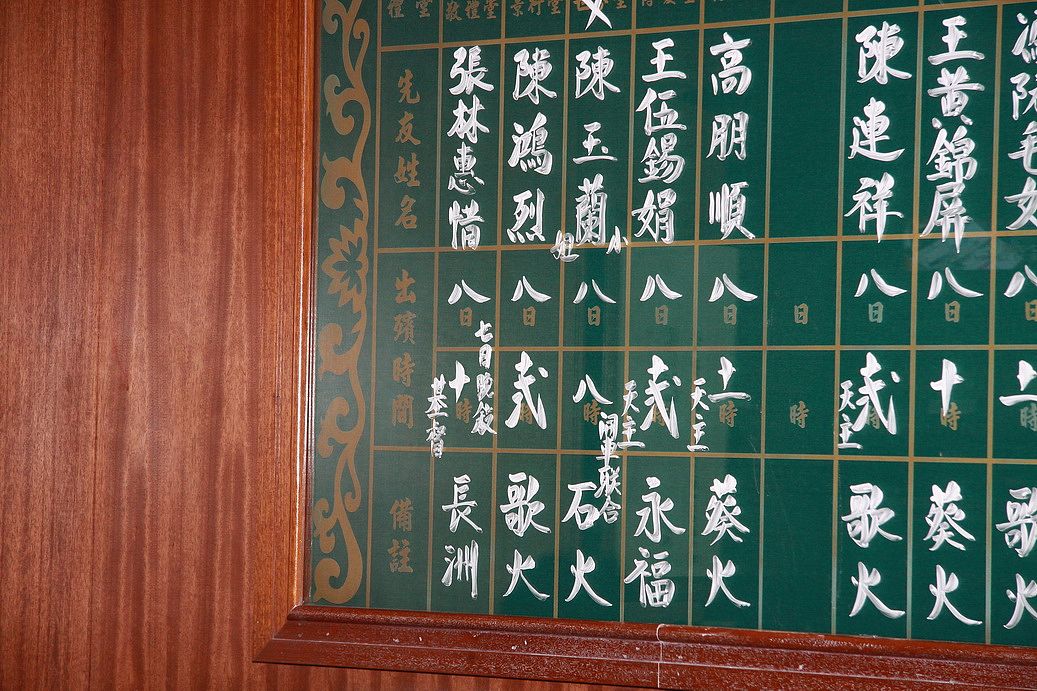 禮堂
先友姓名
出殯時間
備註
敬禮堂
張林惠惜
八日
七日晚殮
十時
基督
長洲
景行堂
陳鴻烈
八日
弍時
歌火
陳玉蘭
小姐
八日
八時
石火
王伍錫娟
八日
弍時
天主
永福
高朋順
八日
十一時
天主
葵火
日
時
陳連祥
八日
弍時
天主
歌火
王黃錦屏
八日
十時
葵火
八日
時
歌火